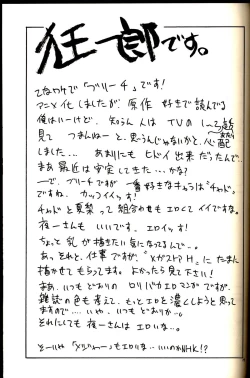 狂一郎です。
てなわけで「ブリーチ」です!
アニメ化しましたが、原作 好きで読んでる
俺はいーけど、知らん人は TVの
見て つまんねーと、思うんじゃないかと、心配
しました… あまりにも ヒドイ出来だったんで…
まぁ最近は安定してきた…かな?
で、ブリーチですが 一番好きなキャラは「チャド」
ですね、カッコイイッす!
チャドと夏梨って組合わせもエロくてイイですな。
夜一さんも いいです、エロイッす!
ちょっと 乳が描きたい気になってるんで…。
あっ それと、仕事ですが、「メガストアH」に たまに
描かせてもらってます。よかったら見て下さい!
まぁ、いつもどおりの ロリバカエロマンガですが、
雑誌の色も考えて、もっとエロを濃くしようと思って
ますので……いや、いつもどおりか…。
それにしても 夜一さんはエロいな…。